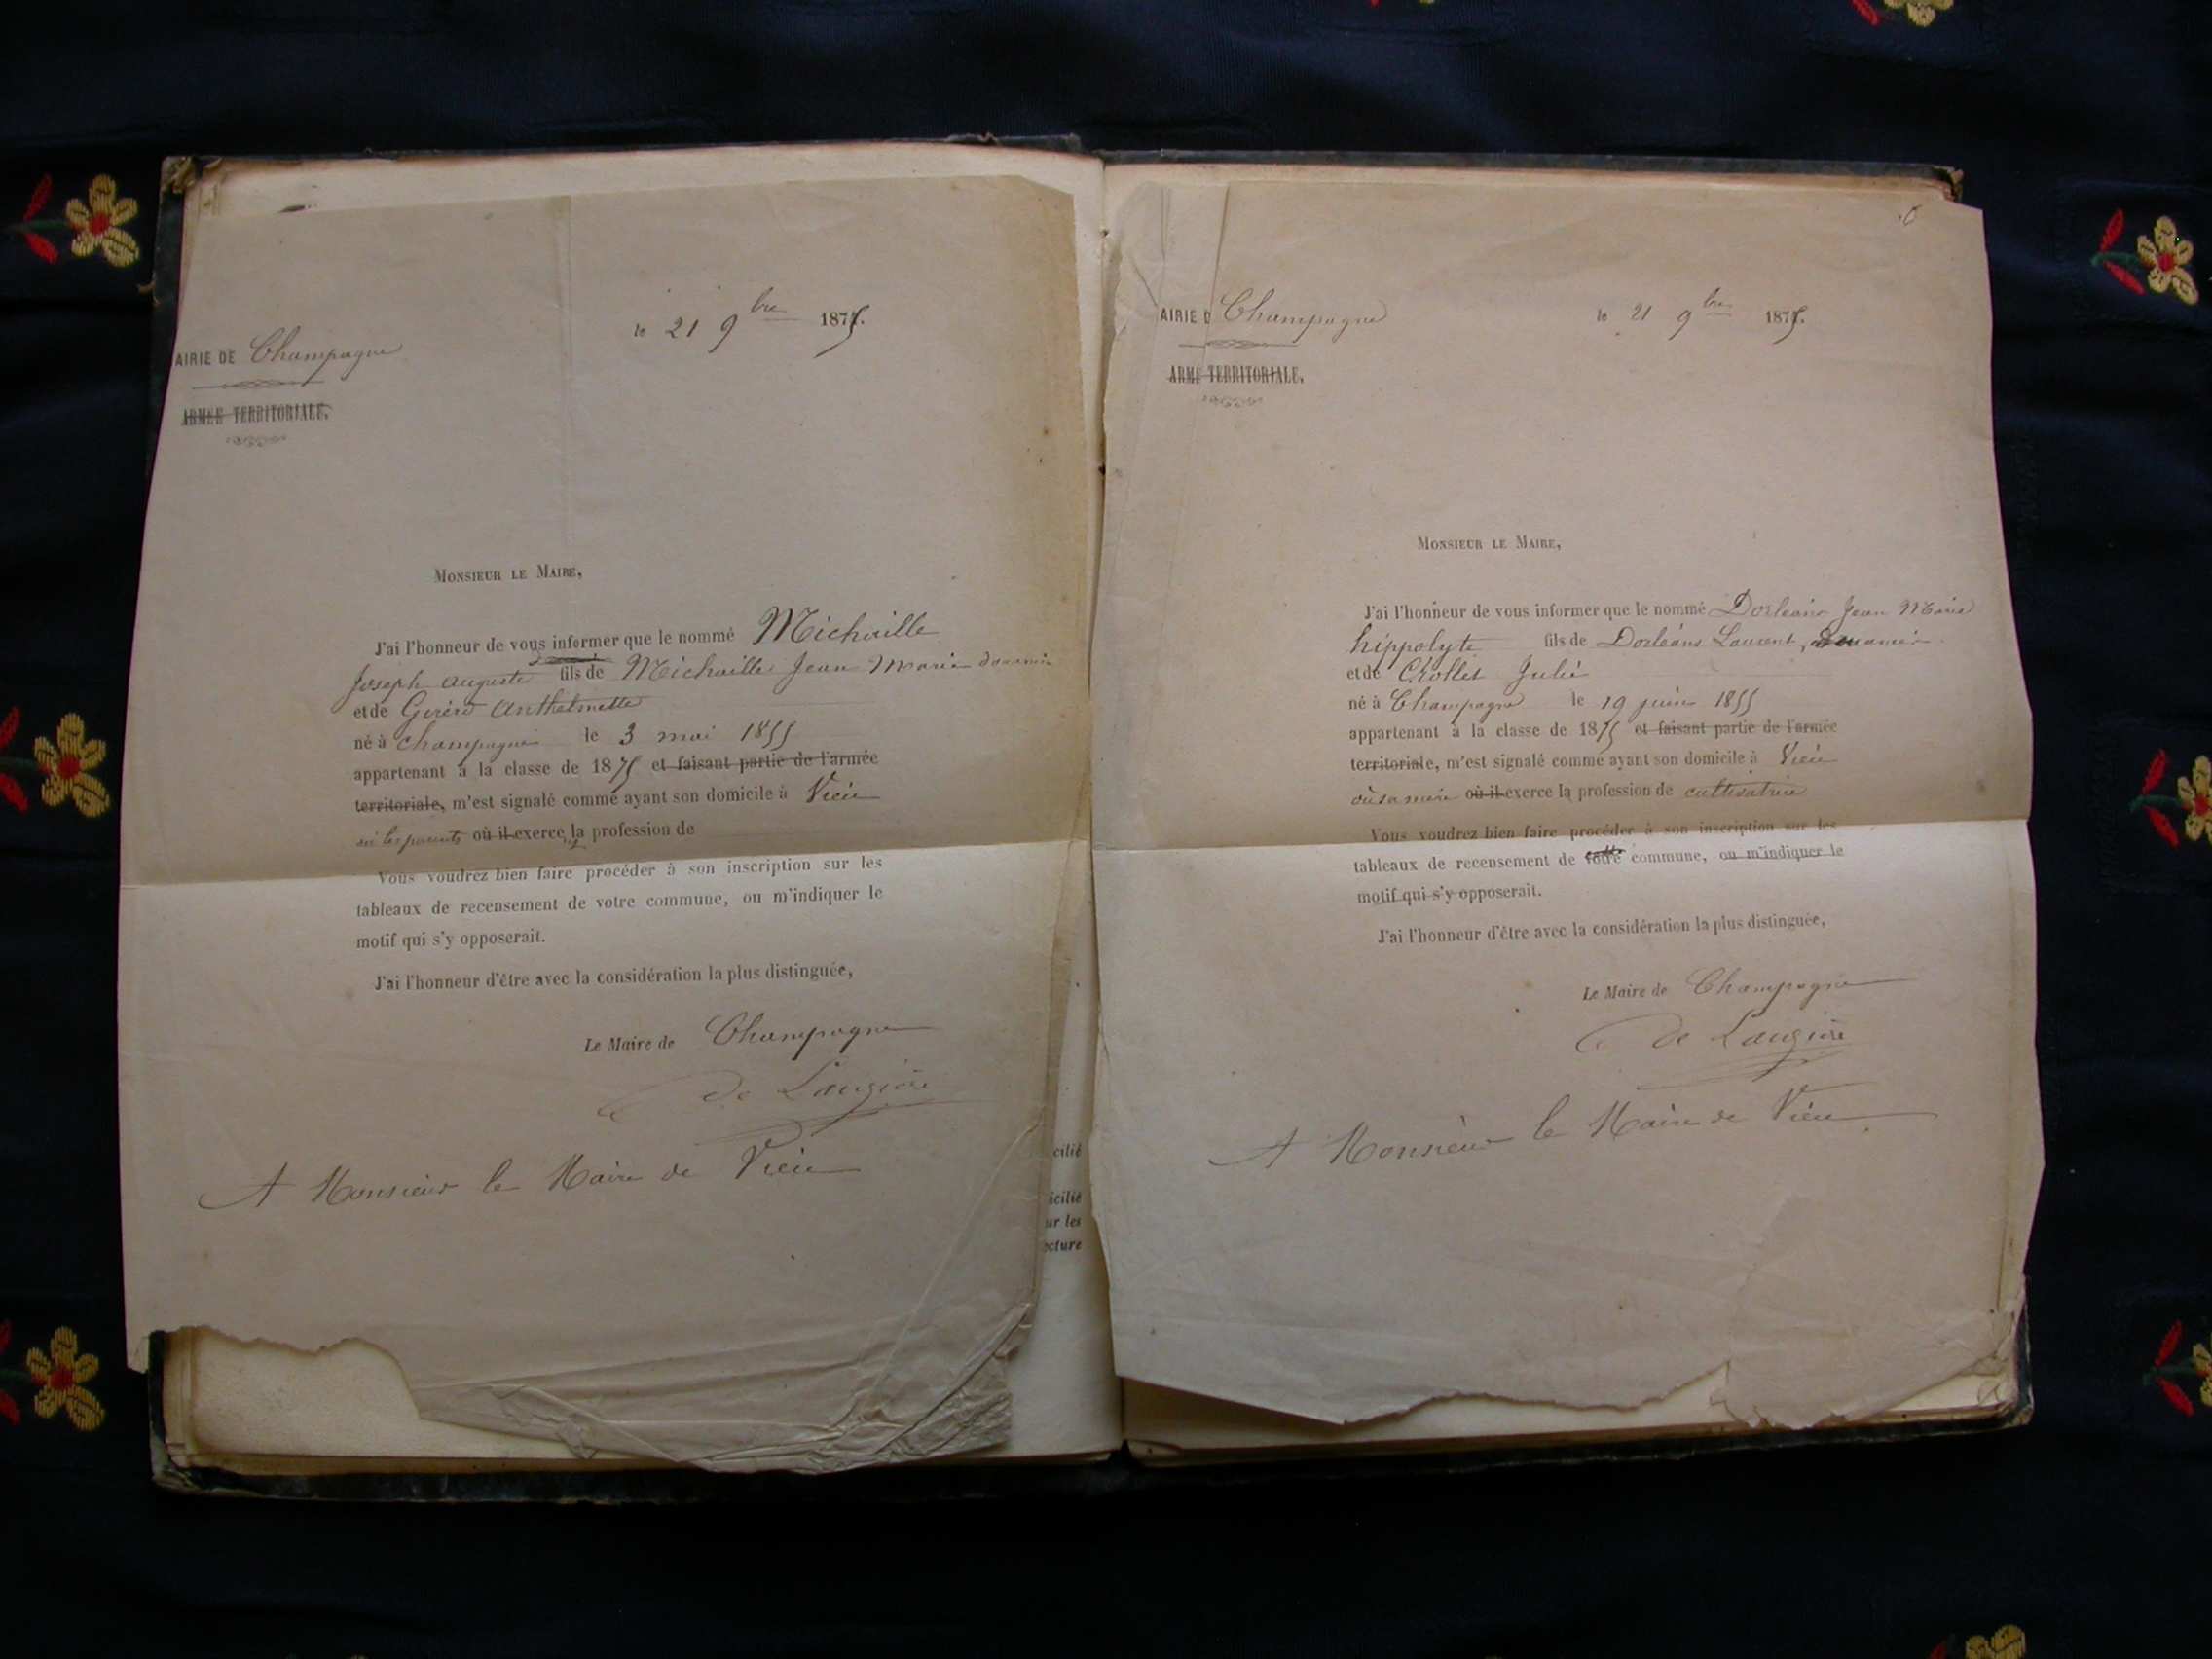 AIRIE DE Champagne
le 21 9bre 1875.
ARMÉE TERRITORIALE.
MONSIEUR LE MAIRE,
J'ai l'honneur de vous informer que le nommé Michaille
Joseph auguste fils de Michaille Jean Marie
et de Anthelmette
né à champagne le 3 mai 1855
appartenant à la classe de 1875 et faisant partie de l'armée
territoriale, m'est signalé comme ayant son domicile à Vieu
où il exerce la profession de
Vous voudrez bien faire procéder à son inscription sur les
tableaux de recensement de votre commune, ou m'indiquer le
motif qui s'y opposerait.
J'ai l'honneur d'être avec la considération la plus distinguée,
Le Maire de Champagne
A Monsieur le Maire de Vieu
cilié
icilié
ur les
cture
AIRIE D Champagne
le 21 9bre 1875.
ARMÉE TERRITORIALE.
MONSIEUR LE MAIRE,
J'ai l'honneur de vous informer que le nommé Dorléans Jean Marie
hippolyte fils de Dorléans Laurent,
et de Chollet Julie
né à Champagne le 19 juin 1855
appartenant à la classe de 1875 et faisant partie de l'armée
territoriale, m'est signalé comme ayant son domicile à Vieu
où sa mère où il exerce la profession de cultivatrice
Vous voudrez bien faire procéder à son inscription sur les
tableaux de recensement de votre commune, ou m'indiquer le
motif qui s'y opposerait.
J'ai l'honneur d'être avec la considération la plus distinguée,
Le Maire de Champagne
A Monsieur le Maire de Vieu